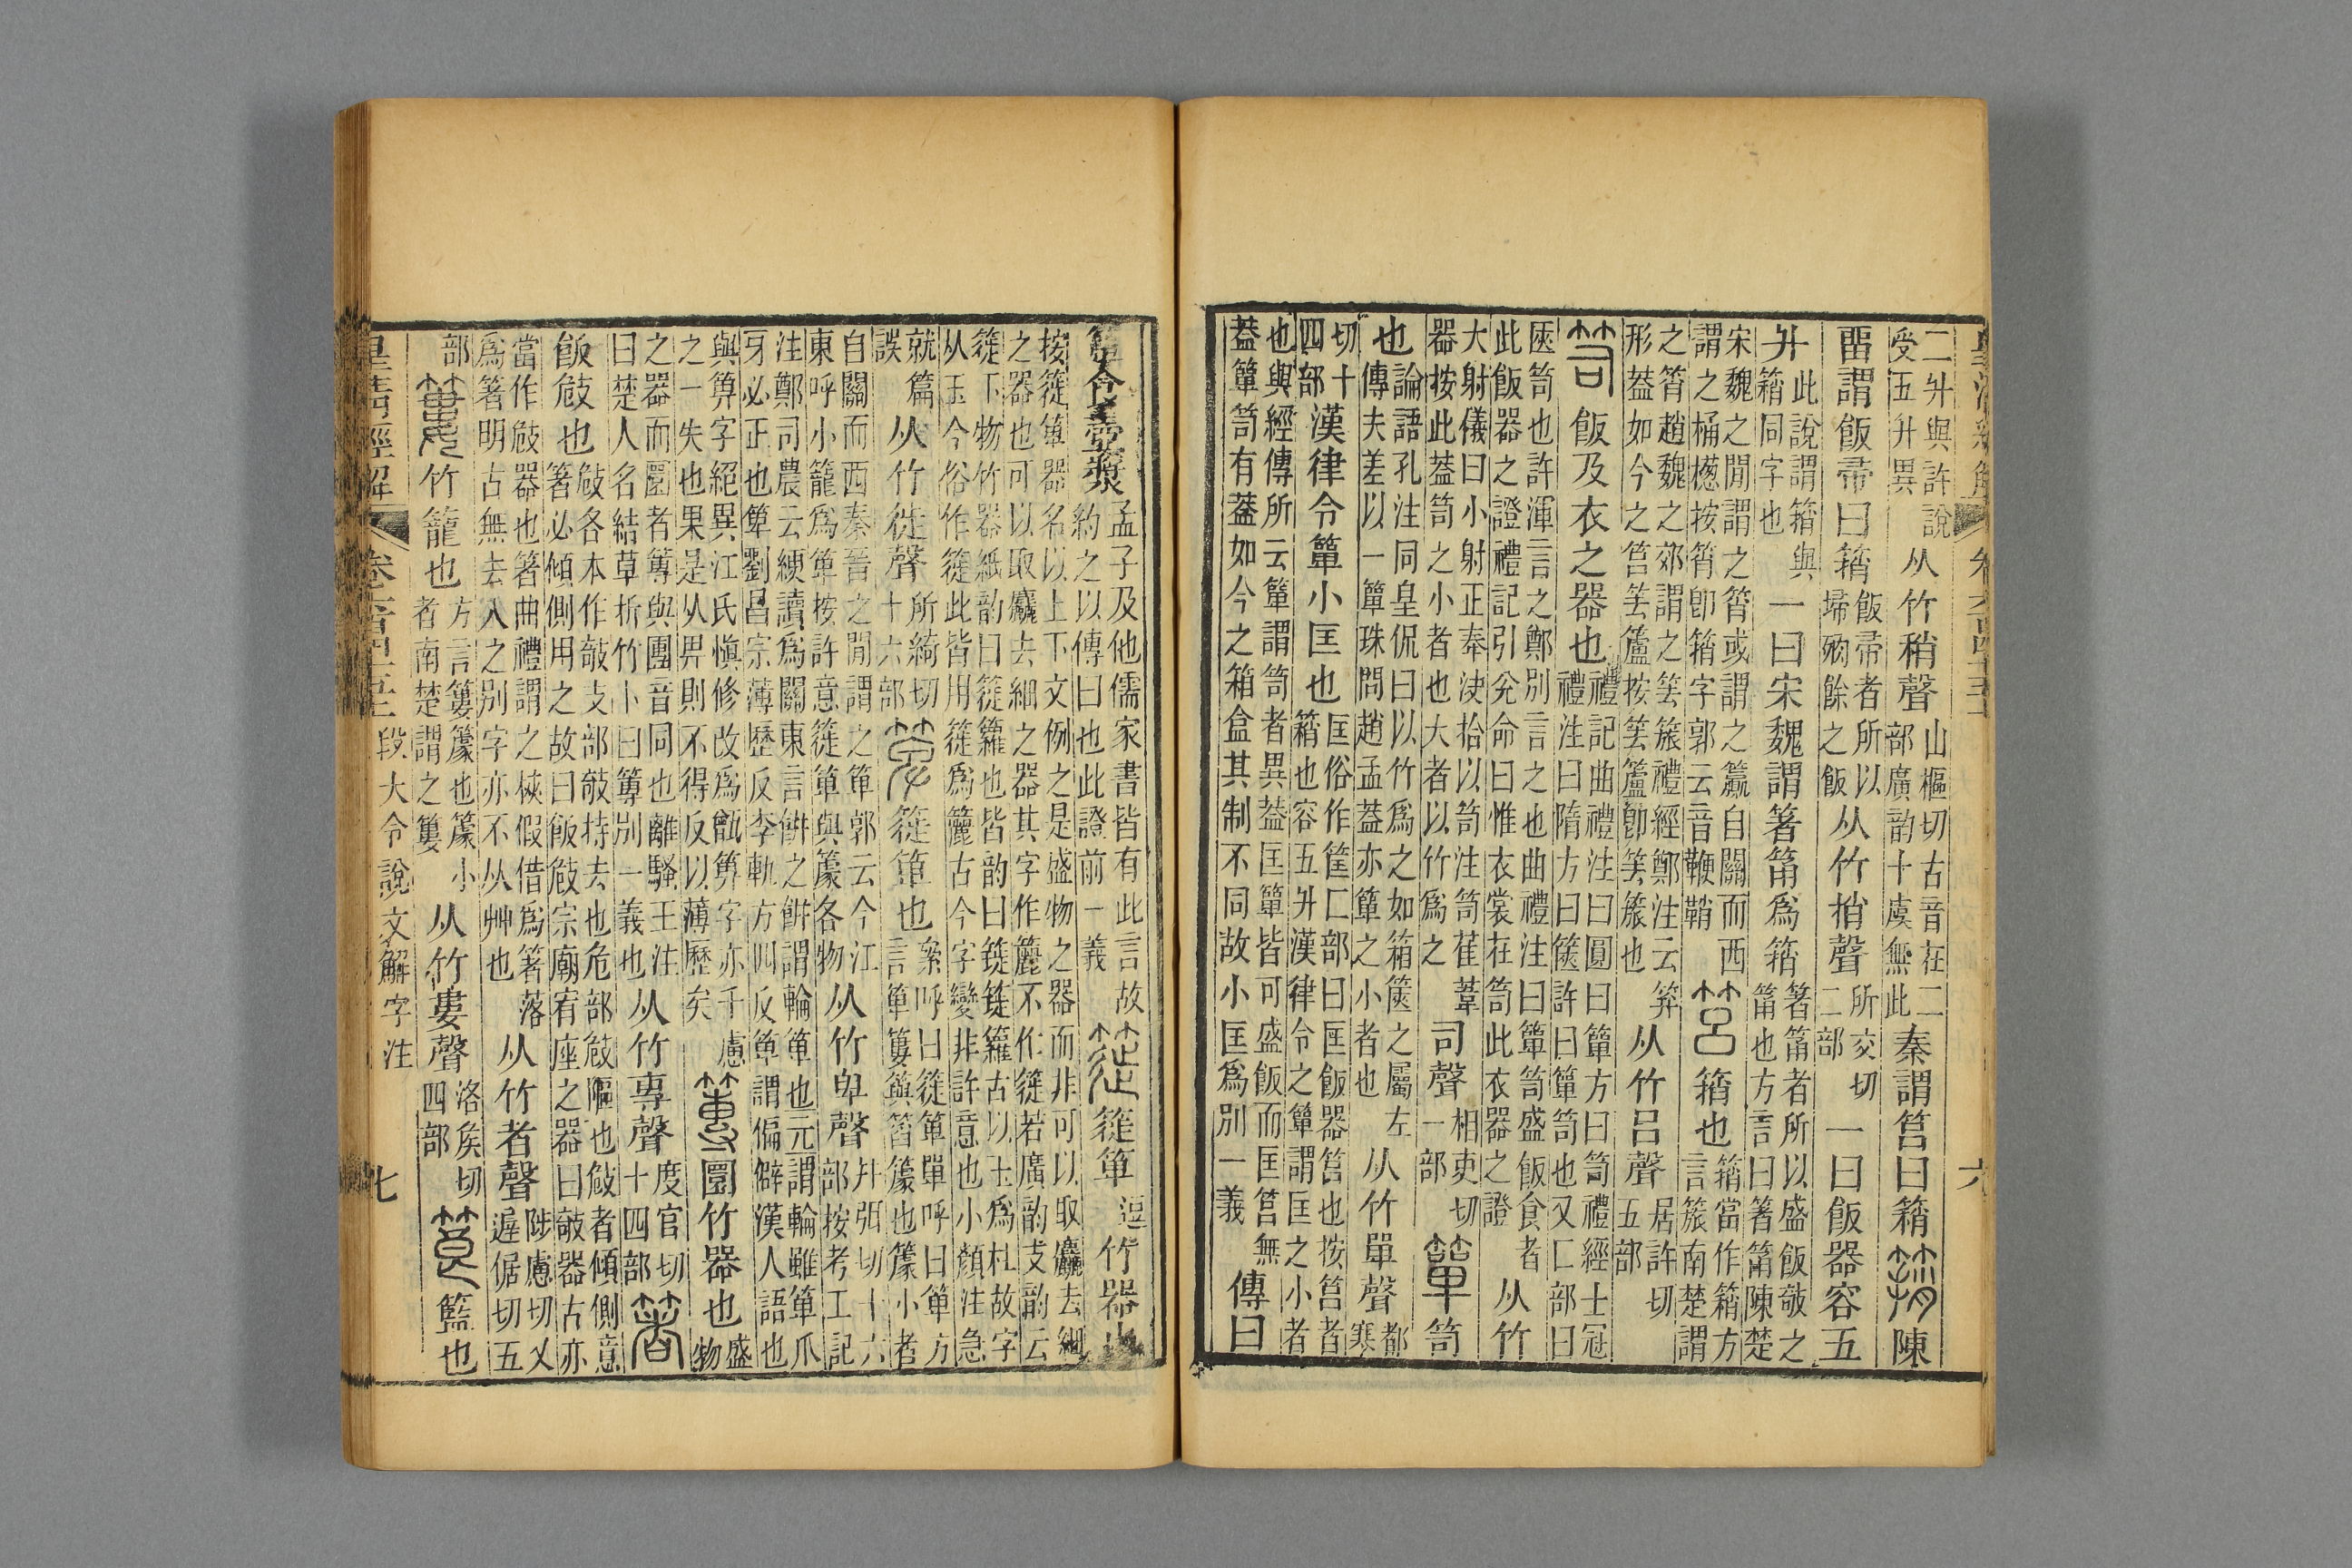 二升與許說受五升異从竹稍聲山樞切古音在二部廣韵十虞無此秦謂筥曰䈰陳
畱謂飯帚曰䈰飯帚者所以埽餘之飯从竹捎聲所交切二部一曰飯器容五
升此說謂䈰與䈰同字也一曰宋魏謂箸筩爲䈰箸筩者所以盛飯敧之筩也方言曰箸筩陳楚
宋魏之閒謂之筲或謂之籯自關而西謂之桶檧按筲卽䈰字郭云音鞭鞘筥䈰也䈰當作䈰方言南楚謂
之筲趙魏之郊謂之禮經鄭注云笲形葢如今之筥按卽也从竹呂聲居許切五部
笥飯及衣之器也禮記曲禮注曰圓曰簞方曰笥禮經士冠禮注曰隋方曰篋許曰簞笥也又匚部曰
匧笥也許渾言之鄭別言之也曲禮注曰簞笥盛飯食者此飯器之證禮記引兊命曰惟衣裳在笥此衣器之證从竹
大射儀曰小射正奉決拾以笥注笥萑葦器按此葢笥之小者也大者以竹爲之司聲相吏切一部簞笥
也論語孔注同皇侃曰以竹爲之如箱篋之屬左傳夫差以一簞珠問趙孟葢亦簞之小者也从竹單聲都寒
切十四部漢律令簞小匡也匡俗作筐匚部曰匡飯器筥也按筥者䈰也容五升漢律令之簞謂匡之小者
也與經傳所云簞謂笥者異葢匡簞皆可盛飯而匡筥無葢簞笥有葢如今之箱盒其制不同故小匡爲別一義傳曰
簞食壺漿孟子及他儒家書皆有此言故約之以傳曰也此證前一義簁簁箄逗竹器也
按簁箄器名以上下文例之是盛物之器而非可以取麤去細之器也可以取麤去細之器其字作籭不作簁若廣韵支韵云
簁下物竹器紙韵曰簁籮也皆韵曰簁簁籮古以玉爲柱故字从玉今俗作簁此皆用簁爲籭古今字變非許意也小顏注急
就篇誤从竹徙聲所綺切十六部箄簁箄也絫呼曰簁箄單呼曰箄方言箄簍籅䈰籧也籧小者
自關而西秦晉之閒謂之箄郭云今江東呼小籠爲箄按許意簁箄與籧各物从竹卑聲幷弭切十六部按考工記
注鄭司農云綆讀爲關東言餅之餅謂輪箄也元謂輪雖箄爪牙必正也箄劉昌宗薄歷反李軌方四反箄謂偏僻漢人語也
與箅字絕異江氏愼修改爲甑箅字亦千慮之一失也果是从畀則不得反以薄歷矣篿圜竹器也盛物
之器而圜者篿與團音同也離騷王注曰楚人名結草折竹卜曰篿別一義也从竹專聲度官切十四部箸
飯攲也攲各本作敧支部敧持去也危部攲䧢也攲者傾側意箸必傾側用之故曰飯攲宗廟宥座之器曰敧器古亦
當作攲器也箸曲禮謂之梜假借爲箸落爲箸明古無去入之別字亦不从艸也从竹者聲陟慮切又遟倨切五
部簍竹籠也方言簍籧也籧小者南楚謂之簍从竹婁聲洛矦切四部筤籃也
皇淸經解 卷六百四十五上 六
皇淸經解 卷六百四十五上 段大令說文解字注 七